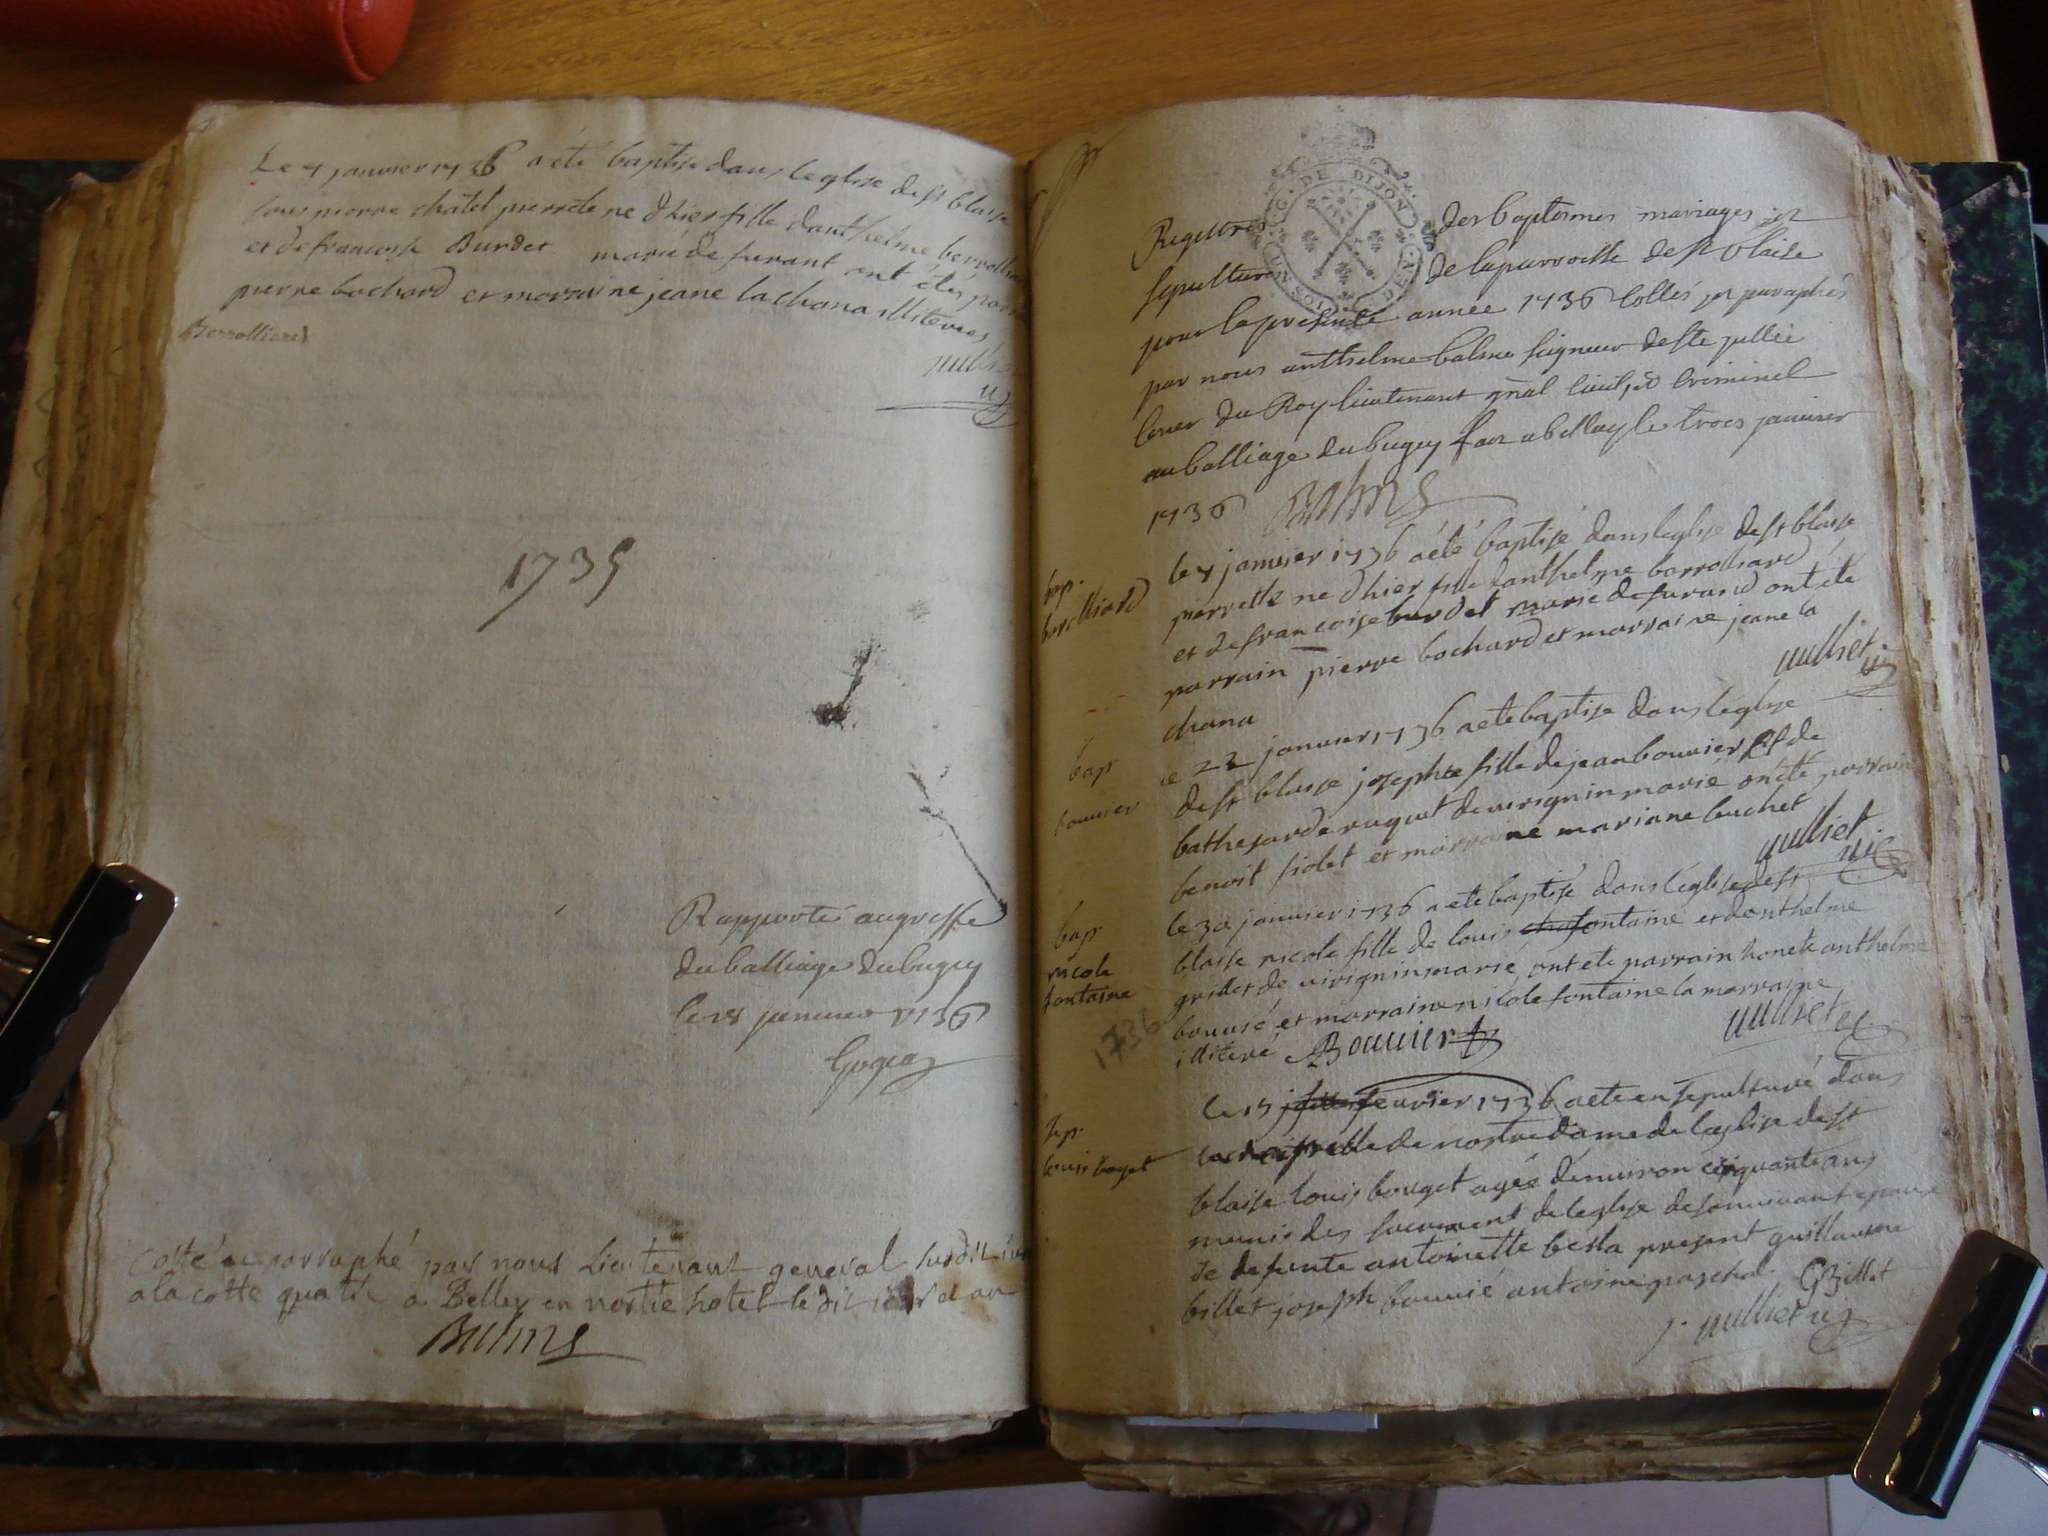 Le 4 janvier 1736 a eté baptise dans leglise de st blaise
sous pierre chatel pierrete ne d'hier fille danthelme berrolliard
et de francoise Burdet marié de furant ont étés parrain
pierre bochard et marraine jeane la chana illiteres
Berrolliard
vulliet
1735
Rapporté au greffe
du balliage du bugey
le 28 janvier 1736
Cotté et parraphé par nous Lieutenant general susdit
a la cotte quatre a Belley en nostre hotel le dit jour et an
Balme
DE DIJON
Registres des baptesmes mariages et
sepultures de la parroisse de st blaise
pour la presente année 1736 Cottés et paraphés
par nous anthelme balme seigneur de ste jullie
Coner du Roy lieutenant gnal Civil et Criminel
au balliage du bugey fait a belley le trois janvier
1736 Balme
bap.
berolliard
le 4 janvier 1736 a été baptisé dans leglise de st blaise
pierrette ne d'hier fille danthelme barrolliard
et de francoise burdet marié de furand ont été
parrain pierre bochard et marraine jeane la
chana
vulliet
bap
bouvier
le 22 janvier 1736 a ete baptise dans leglise
de st blaise josephte fille de jean bouvier et de
ruguet de virignin marié ont été parrain
benoit fiolet et marraine mariane buchet
vulliet
bap
nicole
fontaine
1736
le 30 janvier 1736 a ete baptisé dans leglise de st
blaise nicole fille de louis fontaine et danthelme
grillet de virignin marié ont ete parrain honete anthelme
bouvié et marraine nicole fontaine la marraine
illiteré Bouvier vulliet
sep.
louis bouget
le 15 fevrier 1736 a ete ensepulturé dans
la chappelle de nostre dame de leglise de st
blaise louis bouget agé denviron cinquante ans
munis des sacrement de leglise de son vivant epoux
de defunte antoinette besla present guillaume
billet joseph bouvié antoine paschal GBillet
j. vulliet